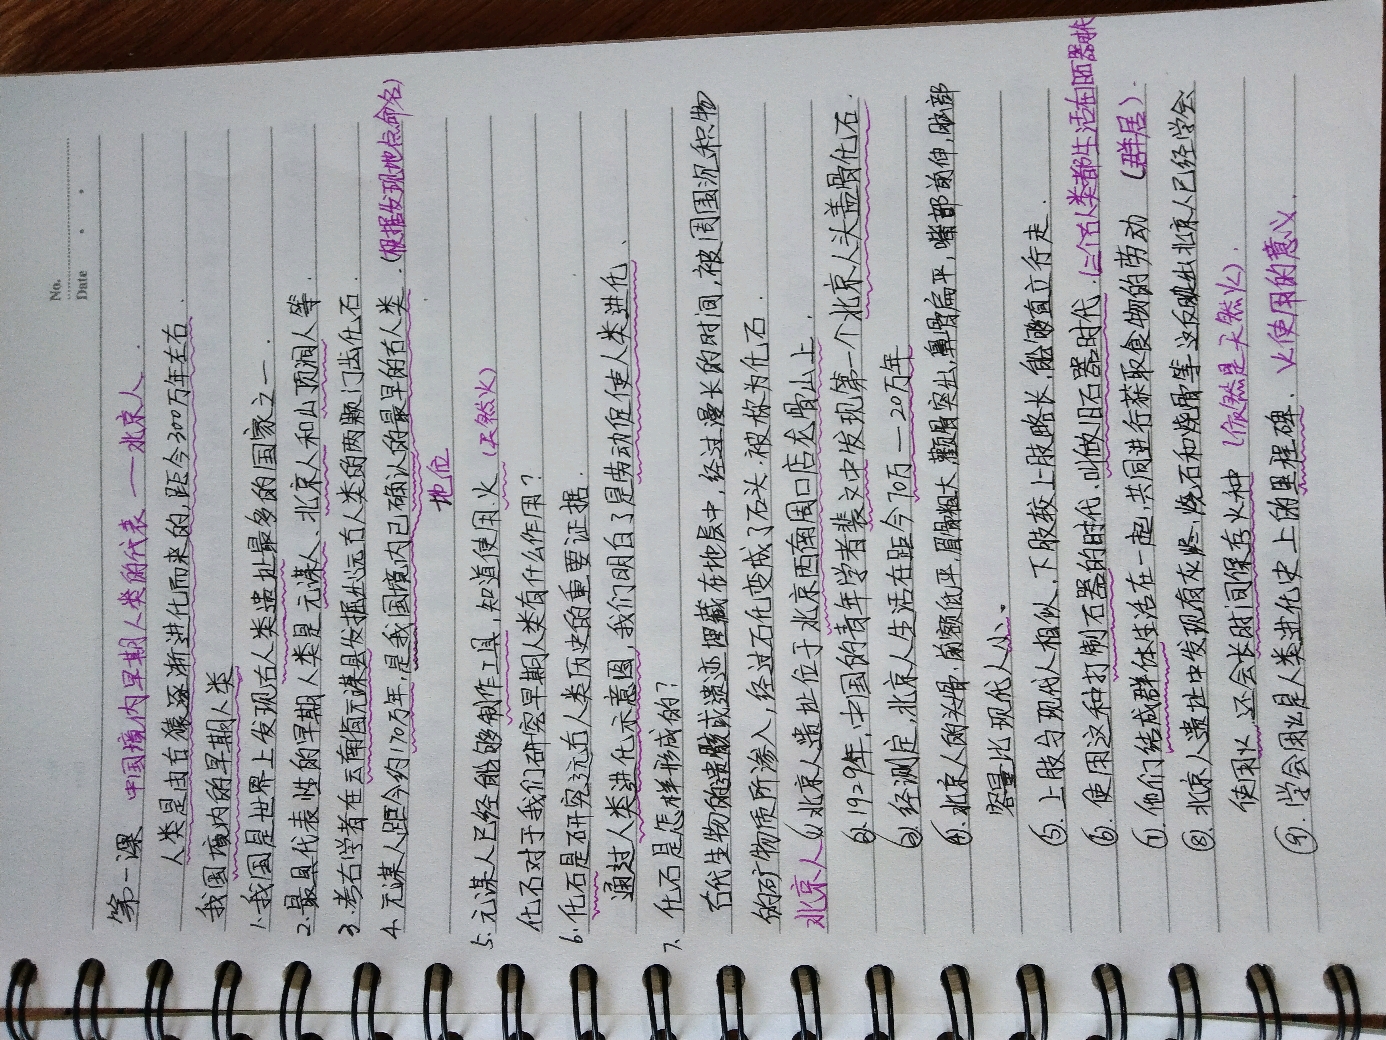 No.
Date
第一课 中国境内早期人类的代表——北京人.
人类是由古猿逐渐进化而来的,距今300万年左右.
我国境内的早期人类
1.我国是世界上发现古人类遗址最多的国家之一.
2.最具代表性的早期人类是元谋人、北京人和山顶洞人等.
3.考古学者在云南省元谋县发掘出远古人类的两颗门齿化石.
4.元谋人距今约170万年,是我国境内已确认的最早的古人类.(根据发现地点命名)
地位
5.元谋人已经能够制作工具,知道使用火.(天然火)
化石对于我们研究早期人类有什么作用?
6.化石是研究远古人类历史的重要证据.
通过人类进化示意图,我们明白了是劳动促使人类进化、
7、化石是怎样形成的?
古代生物的遗骸或遗迹埋藏在地层中,经过漫长的时间,被周围沉积物
的矿物质所渗入,经过石化变成了石头.被称为化石.
北京人①北京人遗址位于北京西南周口店龙骨山上.
②1929年,中国的青年学者裴文中发现第一个北京人头盖骨化石.
③经测定,北京人生活在距今70万—20万年
④.北京人的头骨:前额低平,眉脊粗大,颧骨突出,鼻骨扁平,嘴部前伸,脑部
容量比现代人小。
⑤.上肢与现代人相似,下肢较上肢略长,能够直立行走.
⑥.使用这种打制石器的时代,叫做旧石器时代.(三个古人类都生活在旧石器时代
⑦.他们结成群体生活在一起,共同进行获取食物的劳动 (群居).
⑧.北京人遗址中发现有灰烬、烧石和烧骨等,这反映出北京人已经学会
使用火,还会长时间保存火种 (依然是天然火).
⑨.学会用火是人类进化史上的里程碑、 火使用的意义.